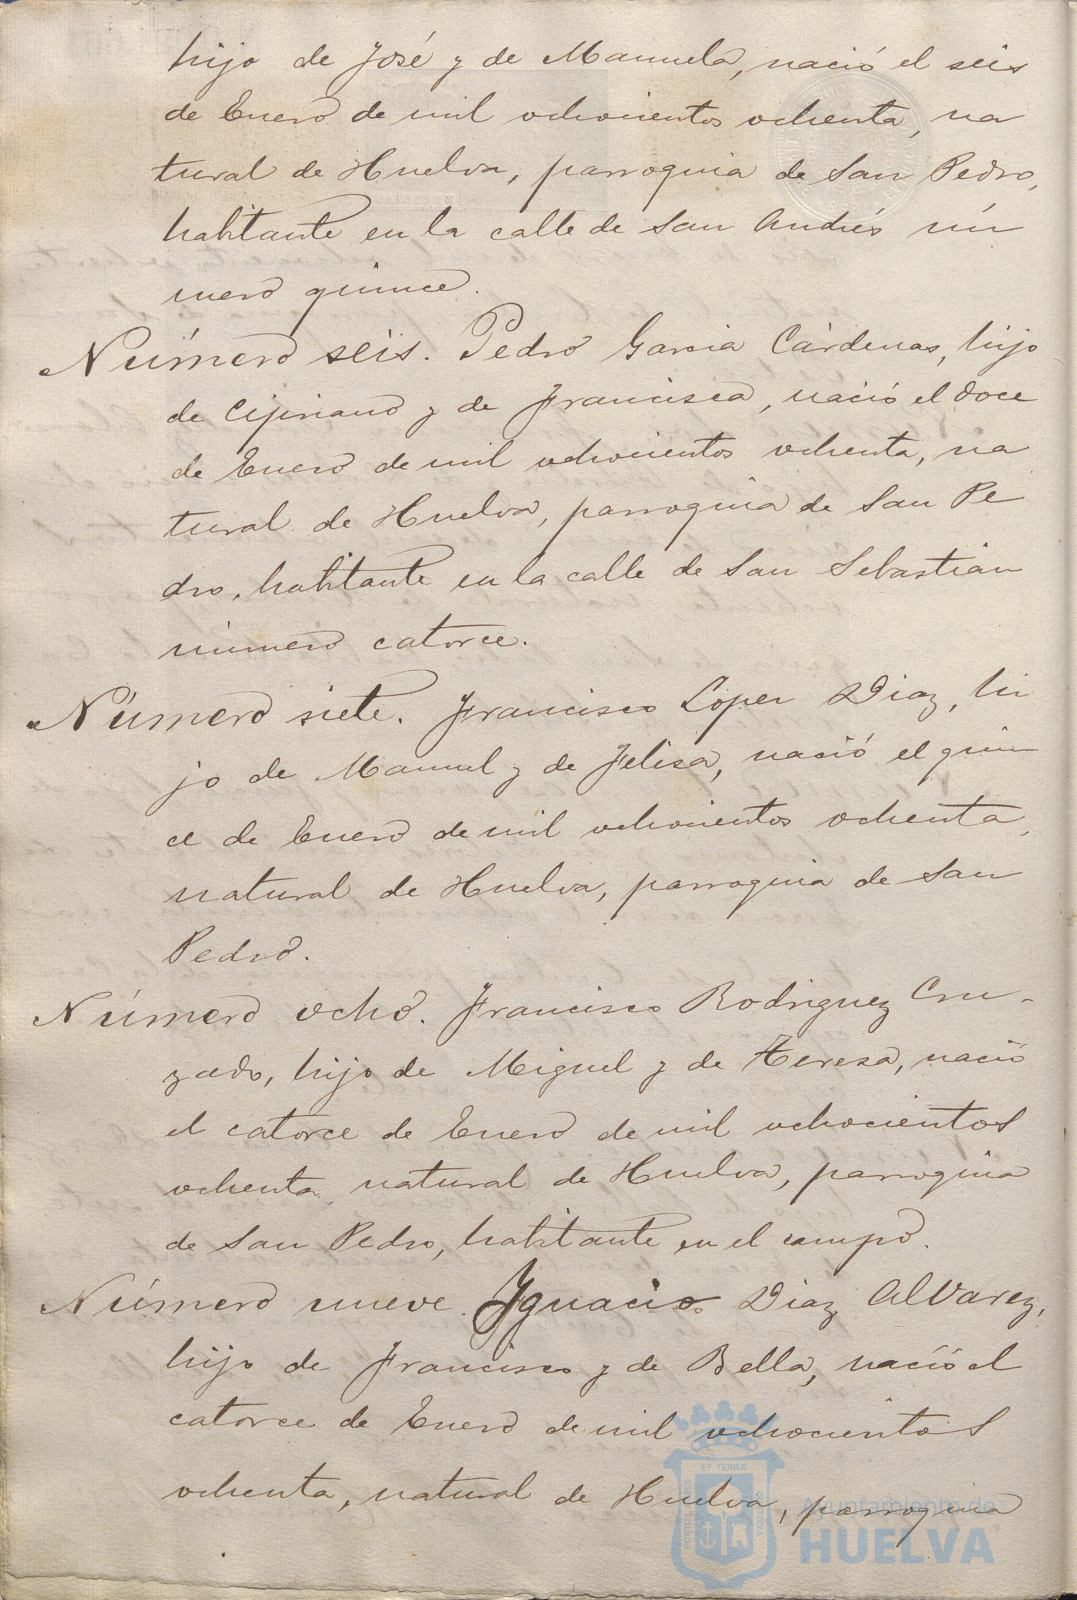 hijo de José y de Manuela, nació el seis
de Enero de mil ochocientos ochenta, na
tural de Huelva, parroquia de San Pedro,
habitante en la calle de San Andrés nú
mero quince.
Número seis. Pedro Garcia Cárdenas, hijo
de Cipriano y de Francisca, nació el doce
de Enero de mil ochocientos ochenta, na
tural de Huelva, parroquia de San Pe
dro, habitante en la calle de San Sebastián
número catorce.
Número siete. Francisco López Diaz, hi
jo de Manuel y de Felisa, nació el quin
ce de Enero de mil ochocientos ochenta,
natural de Huelva, parroquia de San
Pedro.
Número ocho. Francisco Rodriguez Cru-
zado, hijo de Miguel y de Teresa, nació
el catorce de Enero de mil ochocientos
ochenta, natural de Huelva, parroquia
de San Pedro, habitante en el campo.
Número nueve. Ignacio Diaz Alvarez,
hijo de Francisco y de Bella, nació el
catorce de Enero de mil ochocientos
ochenta, natural de Huelva, parroquia
Ayuntamiento de
HUELVA